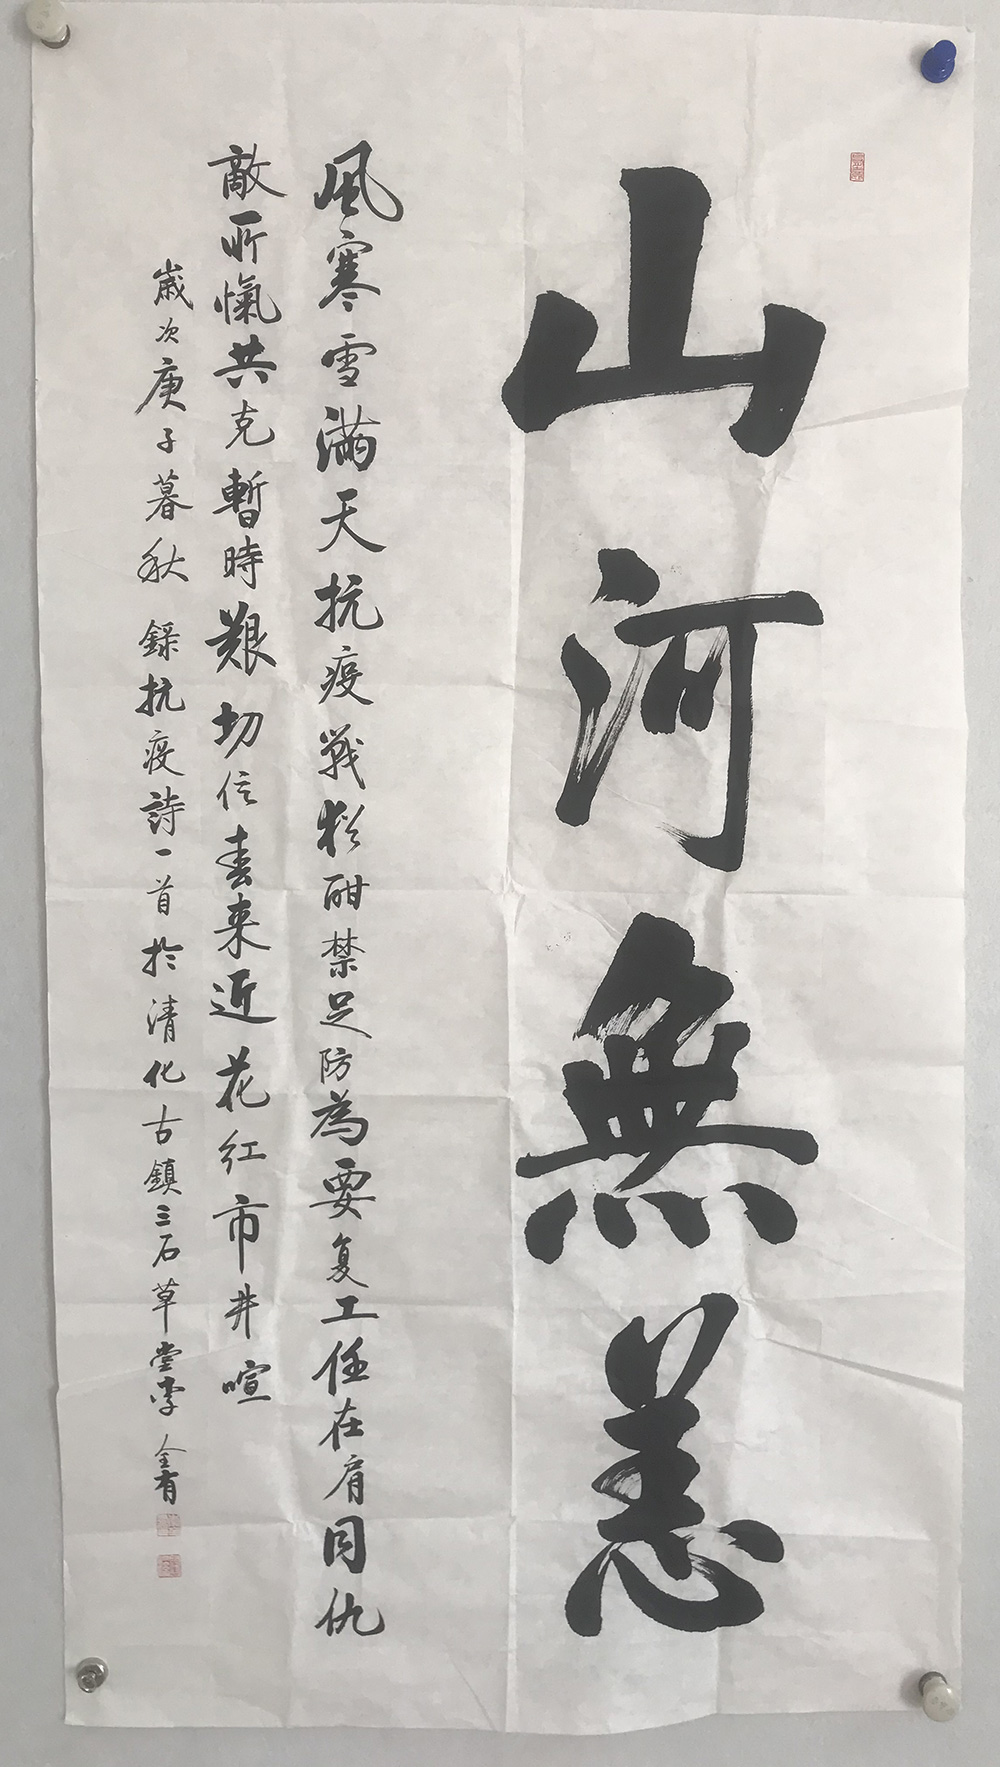 山河無恙
風寒雪滿天抗疫戰猶酣禁足防為要复工任在肩同仇
敵所愾共克暫時艱切信春来近花红市井喧
歲次庚子暮秋錄抗疫詩一首於清化古鎮三石草堂李全有